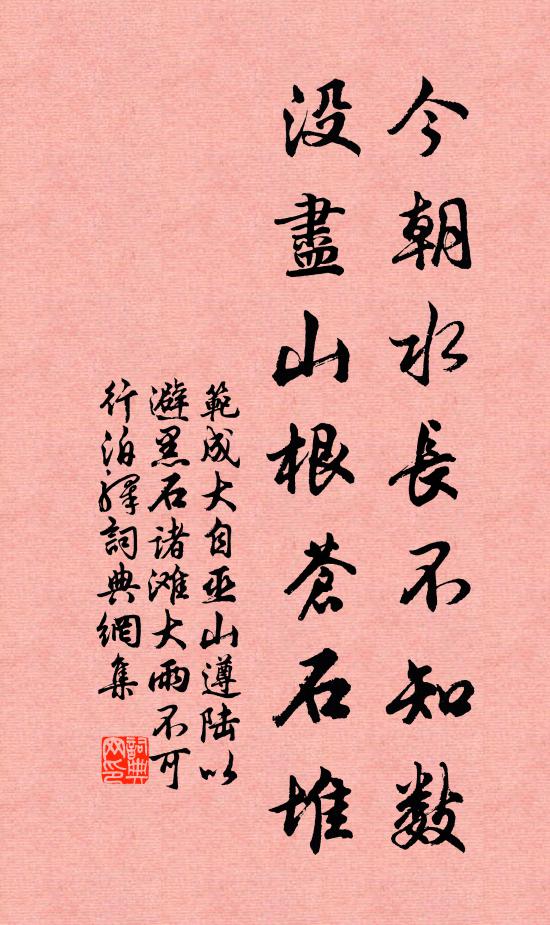 今朝水長不知数
没盡山根蒼石堆
範成大自巫山遵陸以
避黑石诸滩大雨不可
行泊驛詞典網集
詞典
网印